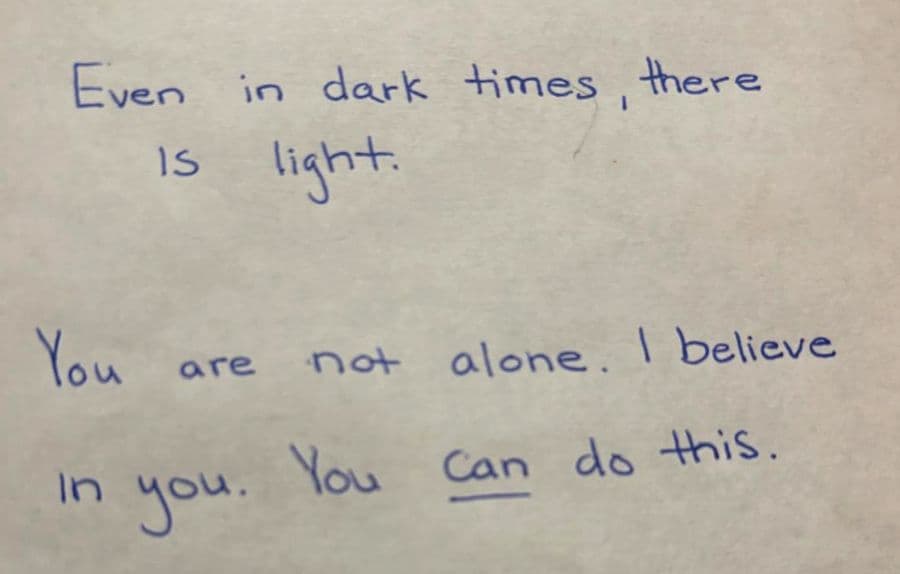 Even in dark times, there
is light.
You are not alone. I believe
in you. You can do this.